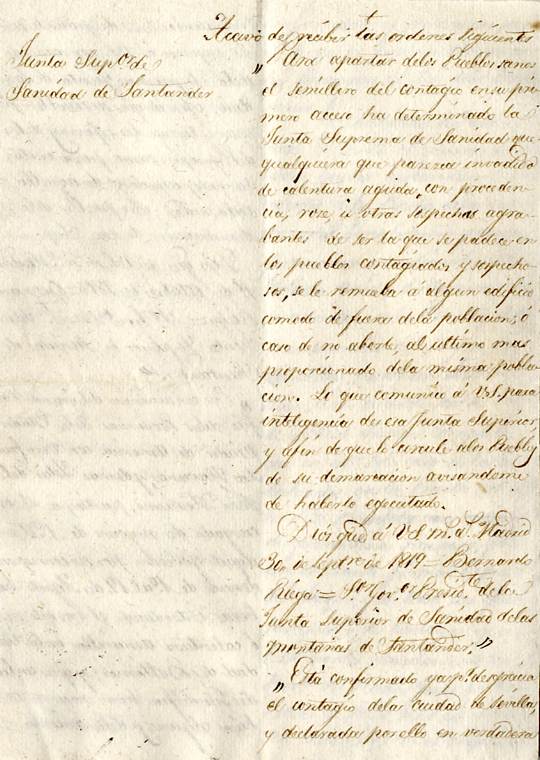 Junta Sup.r de
Sanidad de Santander
Acavo de recibir las ordenes siguientes
"Para apartar delos Pueblos sanos
el semillero del contagio en su pri
mero acceso ha determinado la
Junta Suprema de Sanidad que
qualquiera que parezca invadido
de calentura aguda, con proceden
cia, roze, u otras sospechas agra
bantes de ser la que se padece en
los pueblos contagiados y sospecho
sos, se le remueba á algun edificio
comodo de fuera dela poblacion, ó
caso de no aberle, al ultimo mas
proporcionado dela misma pobla
cion. Lo que comunico á V.S. para
inteligencia de esa Junta Superior,
y afin de que lo circule alos Pueblos
de su demarcacion avisandome
de haberlo egecutado.
Dios gue á V.S. m. a. Madrid
30 de Septre de 1819 = Bernardo
Riega = Sor Gov.or Presid.te dela
Junta Superior de Sanidad delas
montañas de Santander."
"Está confirmado ya p.r desgracia
el contagio delas ciudad de Sevilla,
y declaradas por ello en verdadera